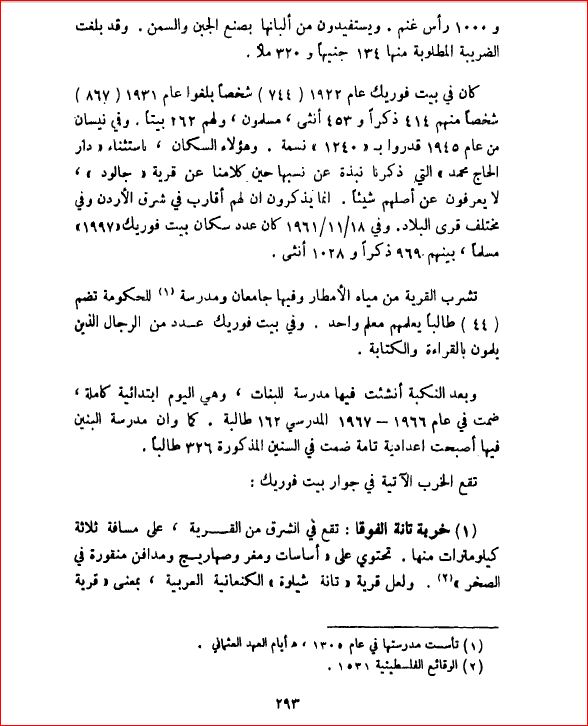 و ١٠٠٠ رأس غنم . ويستفيدون من ألبانها بصنع الجبن والسمن . وقد بلغت
الضريبة المطلوبة منها ١٣٤ جنيهاً و ٣٢٠ ملاً .
كان في بيت فوريك عام ١٩٢٢ ( ٧٤٤ ) شخصاً بلغوا عام ١٩٣١ ( ٨٦٧ )
شخصاً منهم ٤١٤ ذكراً و ٤٥٣ أنثى ، مسلمون ، ولهم ٢٦٢ بيتاً . وفي نيسان
من عام ١٩٤٥ قدروا بـ « ١٢٤٠ » نسمة . وهؤلاء السكان ، باستثناء « دار
الحاج محمد » التي ذكرنا نبذة عن نسبها حين كلامنا عن قرية « جالود » ،
لا يعرفون عن أصلهم شيئاً . انما يذكرون ان لهم أقارب في شرق الأردن وفي
مختلف قرى البلاد. وفي ١٩٦١/١١/١٨ كان عدد سكان بيت فوريك «١٩٩٧»
مسلماً ، بينهم ٩٦٩ ذكراً و ١٠٢٨ أنثى .
تشرب القرية من مياه الأمطار وفيها جامعان ومدرسة (١) للحكومة تضم
( ٤٤ ) طالباً يعلمهم معلم واحد . وفي بيت فوريك عـدد من الرجال الذين
يلمون بالقراءة والكتابة .
وبعد النكبة أنشئت فيها مدرسة للبنات ، وهي اليوم ابتدائية كاملة ،
ضمت في عام ١٩٦٦ – ١٩٦٧ المدرسي ١٦٢ طالبة . كما وان مدرسة البنين
فيها أصبحت اعدادية تامة ضمت في السنين المذكورة ٣٢٦ طالباً .
تقع الخرب الآتية في جوار بيت فوريك :
(١) خربة تانة الفوقا : تقع في الشرق من القـــرية ، على مسافة ثلاثة
كيلومترات منها . تحتوي على « أساسات ومغر وصهاريـج ومدافن منقورة في
الصخر » (٢) . ولعل قرية « تانة شيلوة » الكنعانية العربية ، بمعنى « قرية
(١) تأسست مدرستها في عام ١٣٠٥ ، ه أيام العهد العثماني .
(٢) الوقائع الفلسطينية ١٥٣١ .
٢٩٣